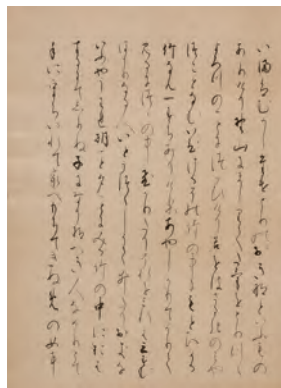 いまはむかし竹とりのおきなといふもの
ありけり野山にましりて竹をとりつゝ
よろつのことにつかひけり名をはさぬきのみや
つことなむいひけるその竹の中にもとひかる
竹なん一すちありけりあやしかりてより
てみるにつゝの中光たりそれをみれは三寸
はかりなる人いとうつくしうてゐたりおきな
いふやうわれ朝ことゆふことにみる竹の中におは
するにてしりぬ子になり給へき人なめりとて
手にうちいれて家へもちてきぬ妻の女